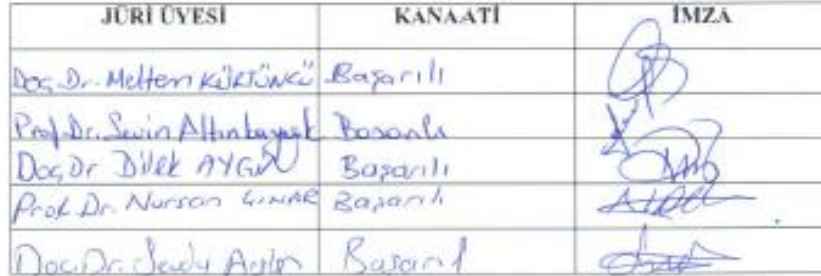 JÜRİ ÜYESİ KANAATİ İMZA
Doç. Dr. Meltem KÜRTÜNCÜ Başarılı
Prof. Dr. Sevin Altınkaynak Başarılı
Doç Dr Dilek AYGİN Başarılı
Prof. Dr. Nursan ÇINAR Başarılı
Doç. Dr. Başarılı